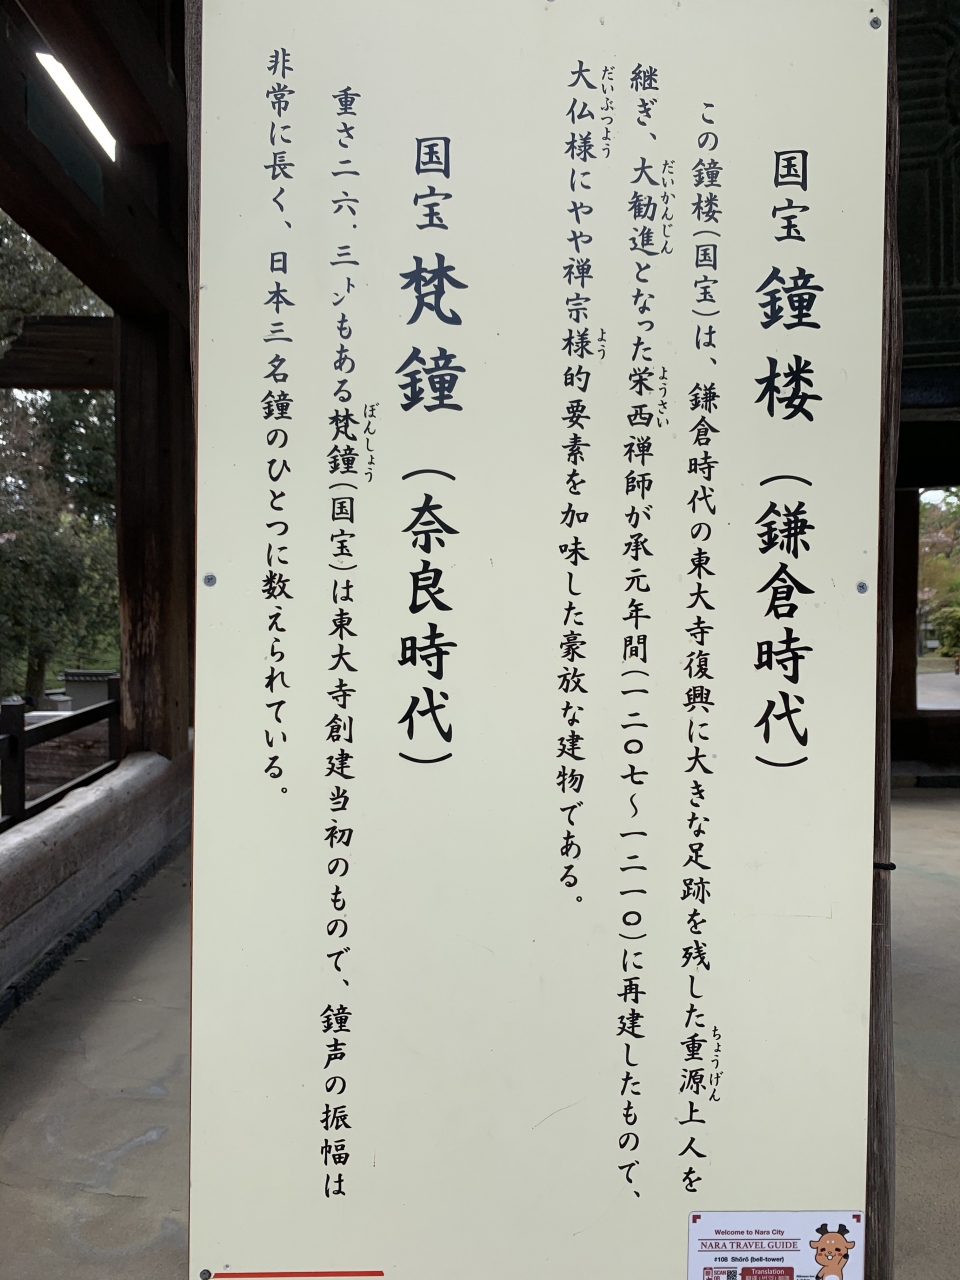 国宝 鐘楼 （鎌倉時代）
この鐘楼(国宝)は、鎌倉時代の東大寺復興に大きな足跡を残した重源上人を
ちょうげん
継ぎ、大勧進となった栄西禅師が承元年間(一二〇七〜一二一〇)に再建したもので、
だいかんじん
ようさい
大仏様にやや禅宗様的要素を加味した豪放な建物である。
だいぶつよう
よう
国宝 梵鐘 （奈良時代）
重さ二六.三㌧もある梵鐘(国宝)は東大寺創建当初のもので、鐘声の振幅は
ぼんしょう
非常に長く、日本三名鐘のひとつに数えられている。
Welcome to Nara City
NARA TRAVEL GUIDE
#108 Shōrō (bell-tower)
SCAN
QR
Translation